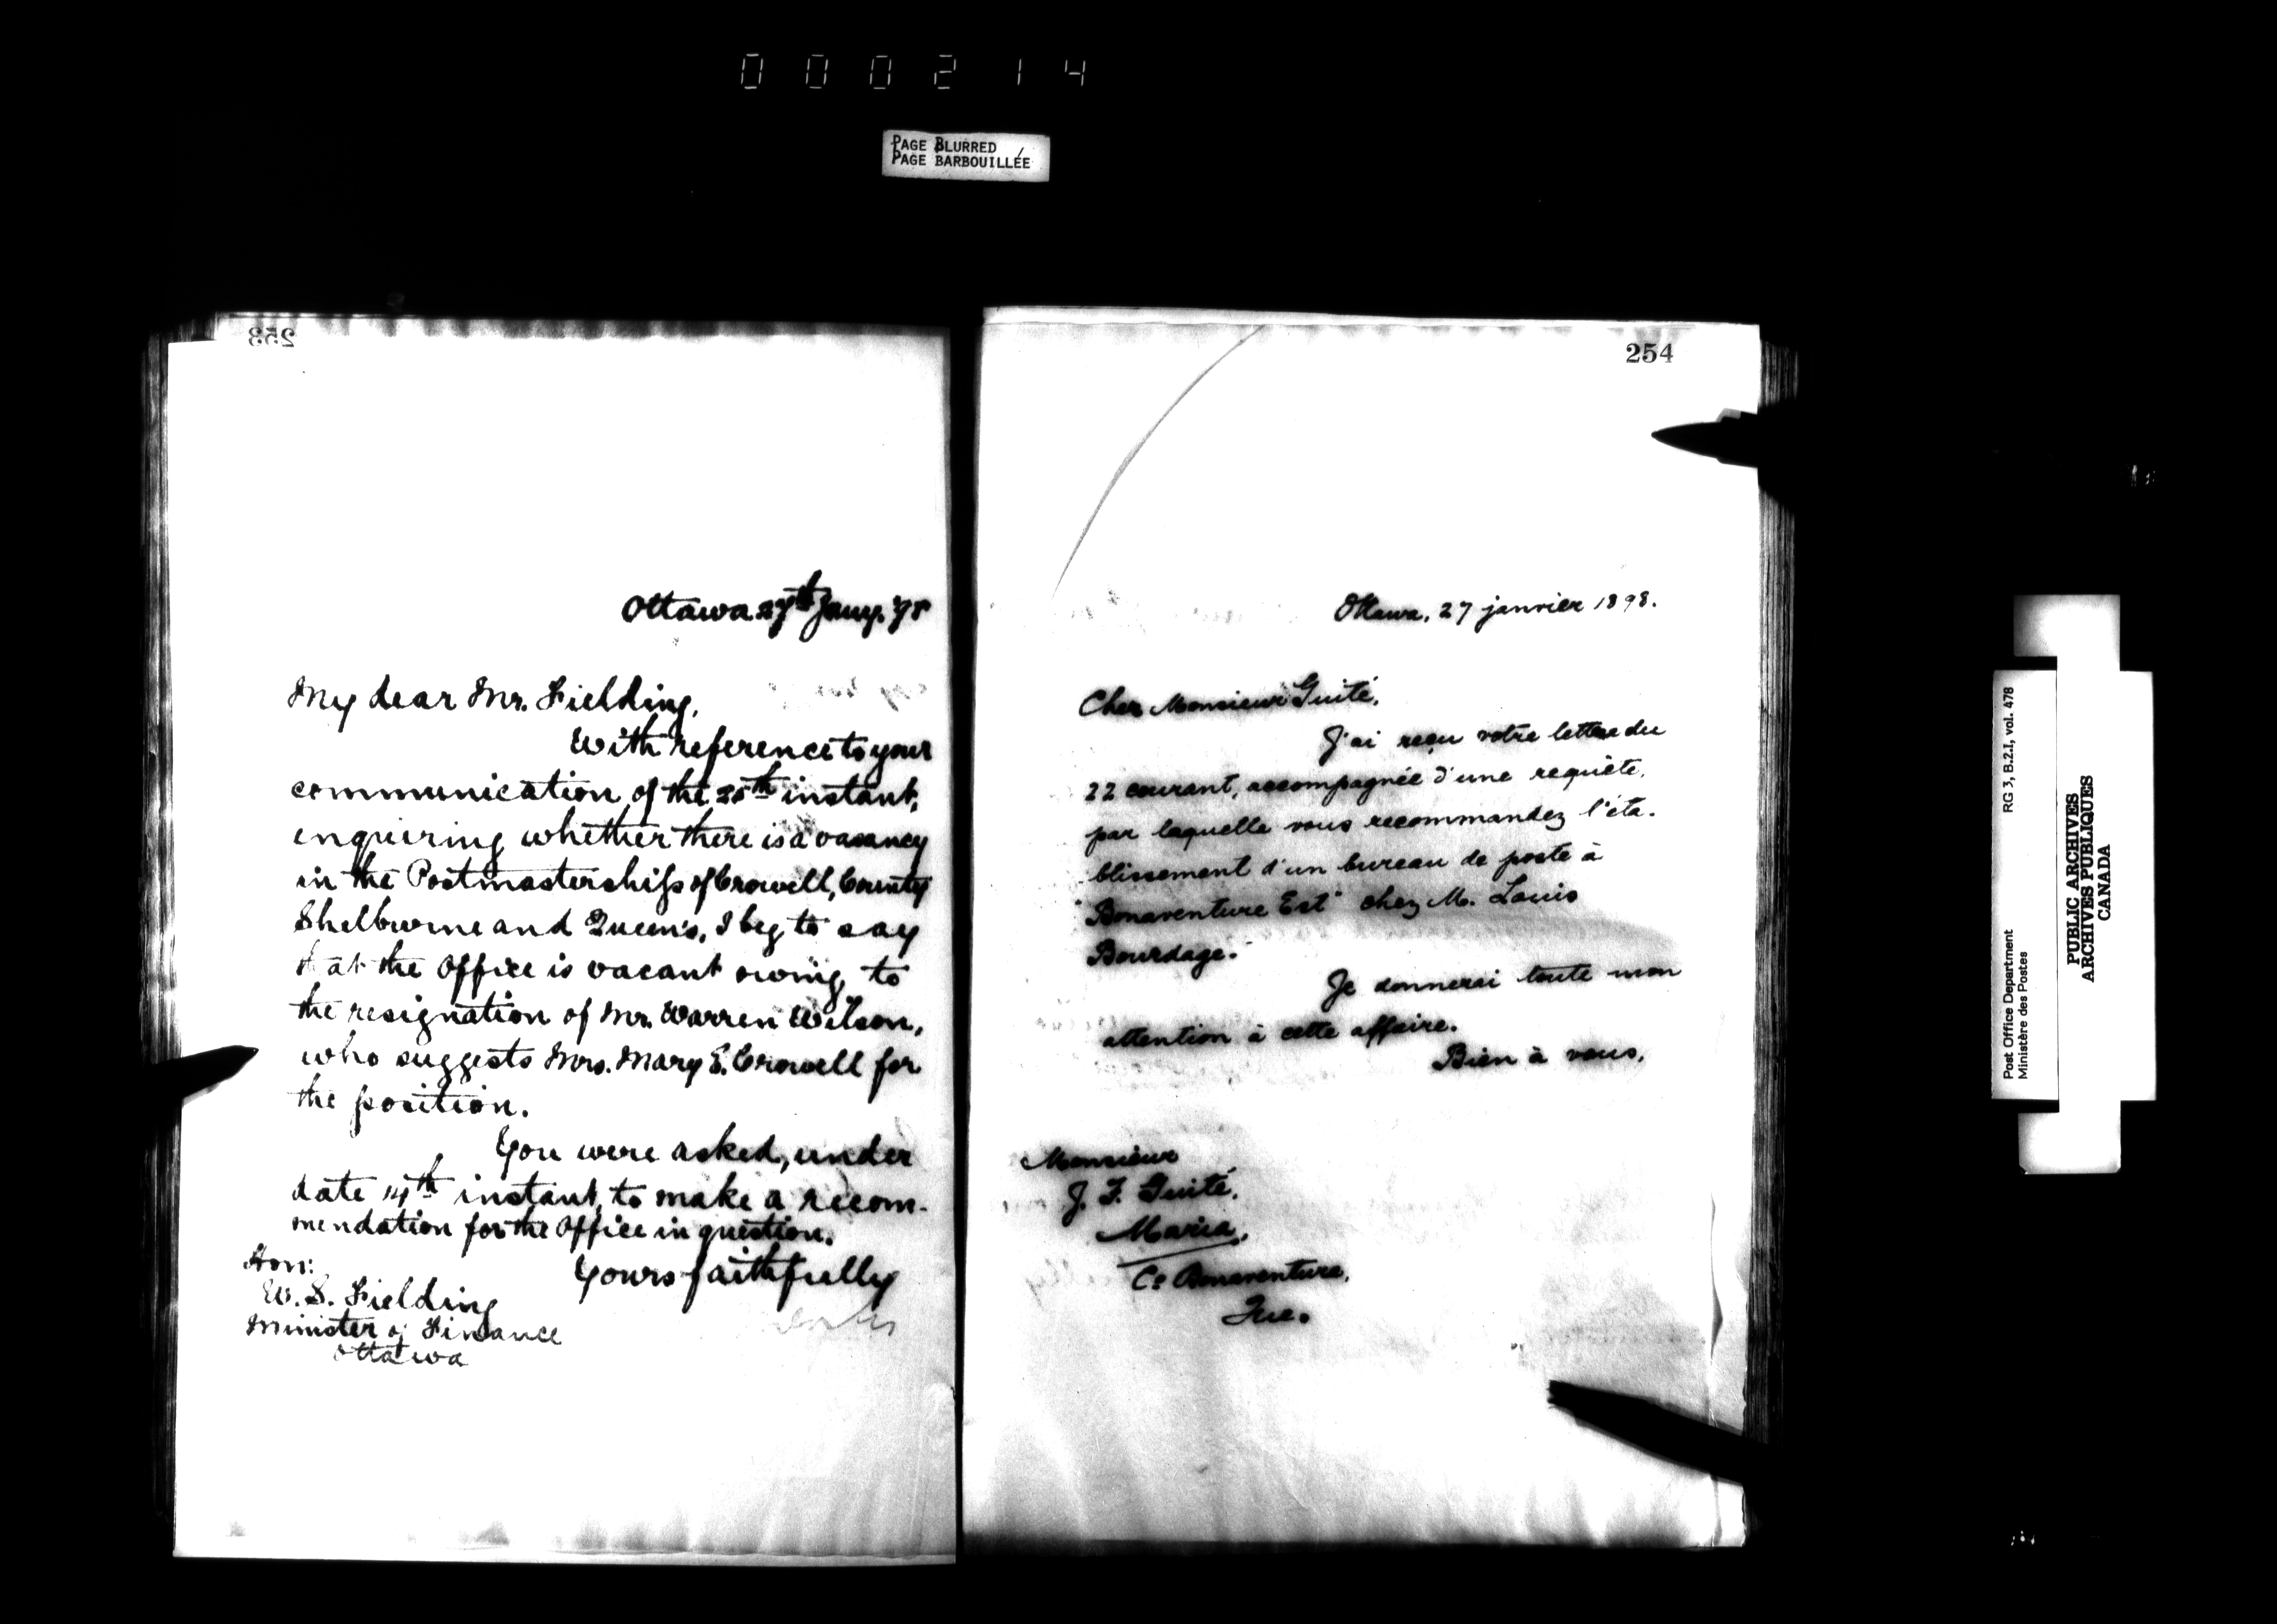 000214
PAGE BLURRED
PAGE BARBOUILLÉE
253
Ottawa. 27th Jany. '98
My dear Mr. Fielding,
With reference to your
communication of the 25th instant,
enquiring whether there is a vacancy
in the Postmastership of Crowell, County
Shelburne and Queen's, I beg to say
that the Office is vacant owing to
the resignation of Mr. Warren Wilson,
who suggests Mrs. Mary E. Crowell for
the position.
You were asked, under
date 14th instant, to make a recom-
mendation for the Office in question.
Yours faithfully
Hon:
W. S. Fielding
Minister of Finance
Ottawa
254
Ottawa, 27 janvier 1898.
Cher Monsieur Guité,
J'ai reçu votre lettre du
22 courant, accompagnée d'une requête,
par laquelle vous recommandez l'éta-
blissement d'un bureau de poste à
"Bonaventure Est" chez M. Louis
Bourdage.
Je donnerai toute mon
attention à cette affaire.
Bien à vous,
Monsieur
J. F. Guité,
Maria,
Co Bonaventure,
Que.
Post Office Department
Ministère des Postes
RG 3, B.2.I, vol. 478
PUBLIC ARCHIVES
ARCHIVES PUBLIQUES
CANADA